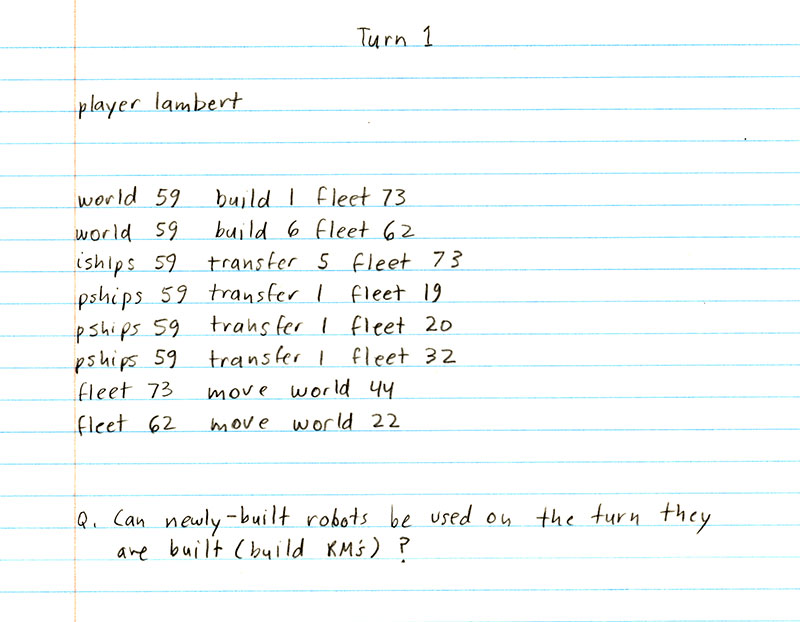 Turn 1
player lambert
world 59 build 1 fleet 73
world 59 build 6 fleet 62
iships 59 transfer 5 fleet 73
pships 59 transfer 1 fleet 19
pships 59 transfer 1 fleet 20
pships 59 transfer 1 fleet 32
fleet 73 move world 44
fleet 62 move world 22
Q. Can newly-built robots be used on the turn they
are built (build RM's)?